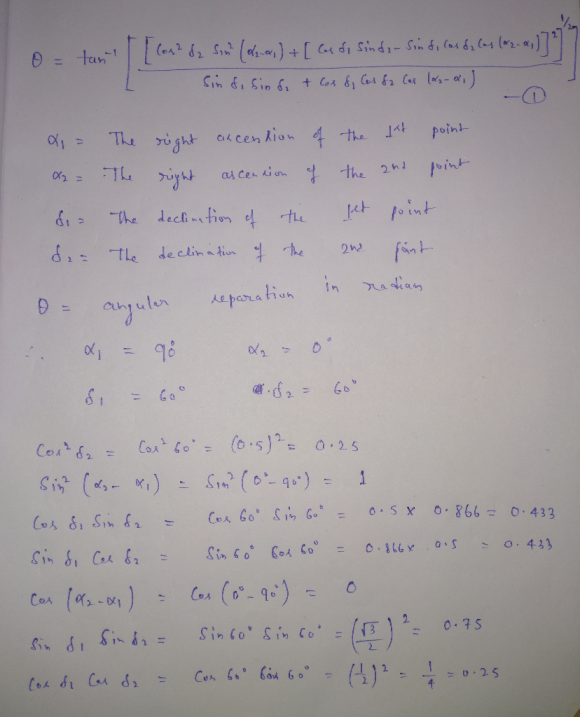 θ = tan⁻¹ [ [ Cos² δ₂ Sin² (α₂-α₁) + [ Cos δ₁ Sin δ₂ - Sin δ₁ Cos δ₂ Cos (α₂-α₁) ]² ]^1/2 / Sin δ₁ Sin δ₂ + Cos δ₁ Cos δ₂ Cos (α₂-α₁) ] —①
α₁ = The right ascension of the 1st point
α₂ = The right ascension of the 2nd point
δ₁ = The declination of the 1st point
δ₂ = The declination of the 2nd point
θ = angular separation in radian
∴ α₁ = 90° α₂ = 0°
δ₁ = 60° δ₂ = 60°
Cos² δ₂ = Cos² 60° = (0.5)² = 0.25
Sin² (α₂ - α₁) = Sin² (0° - 90°) = 1
Cos δ₁ Sin δ₂ = Cos 60° Sin 60° = 0.5 x 0.866 = 0.433
Sin δ₁ Cos δ₂ = Sin 60° Cos 60° = 0.866 x 0.5 = 0.433
Cos (α₂-α₁) = Cos (0° - 90°) = 0
Sin δ₁ Sin δ₂ = Sin 60° Sin 60° = (√3/2)² = 0.75
Cos δ₁ Cos δ₂ = Cos 60° Cos 60° = (1/2)² = 1/4 = 0.25